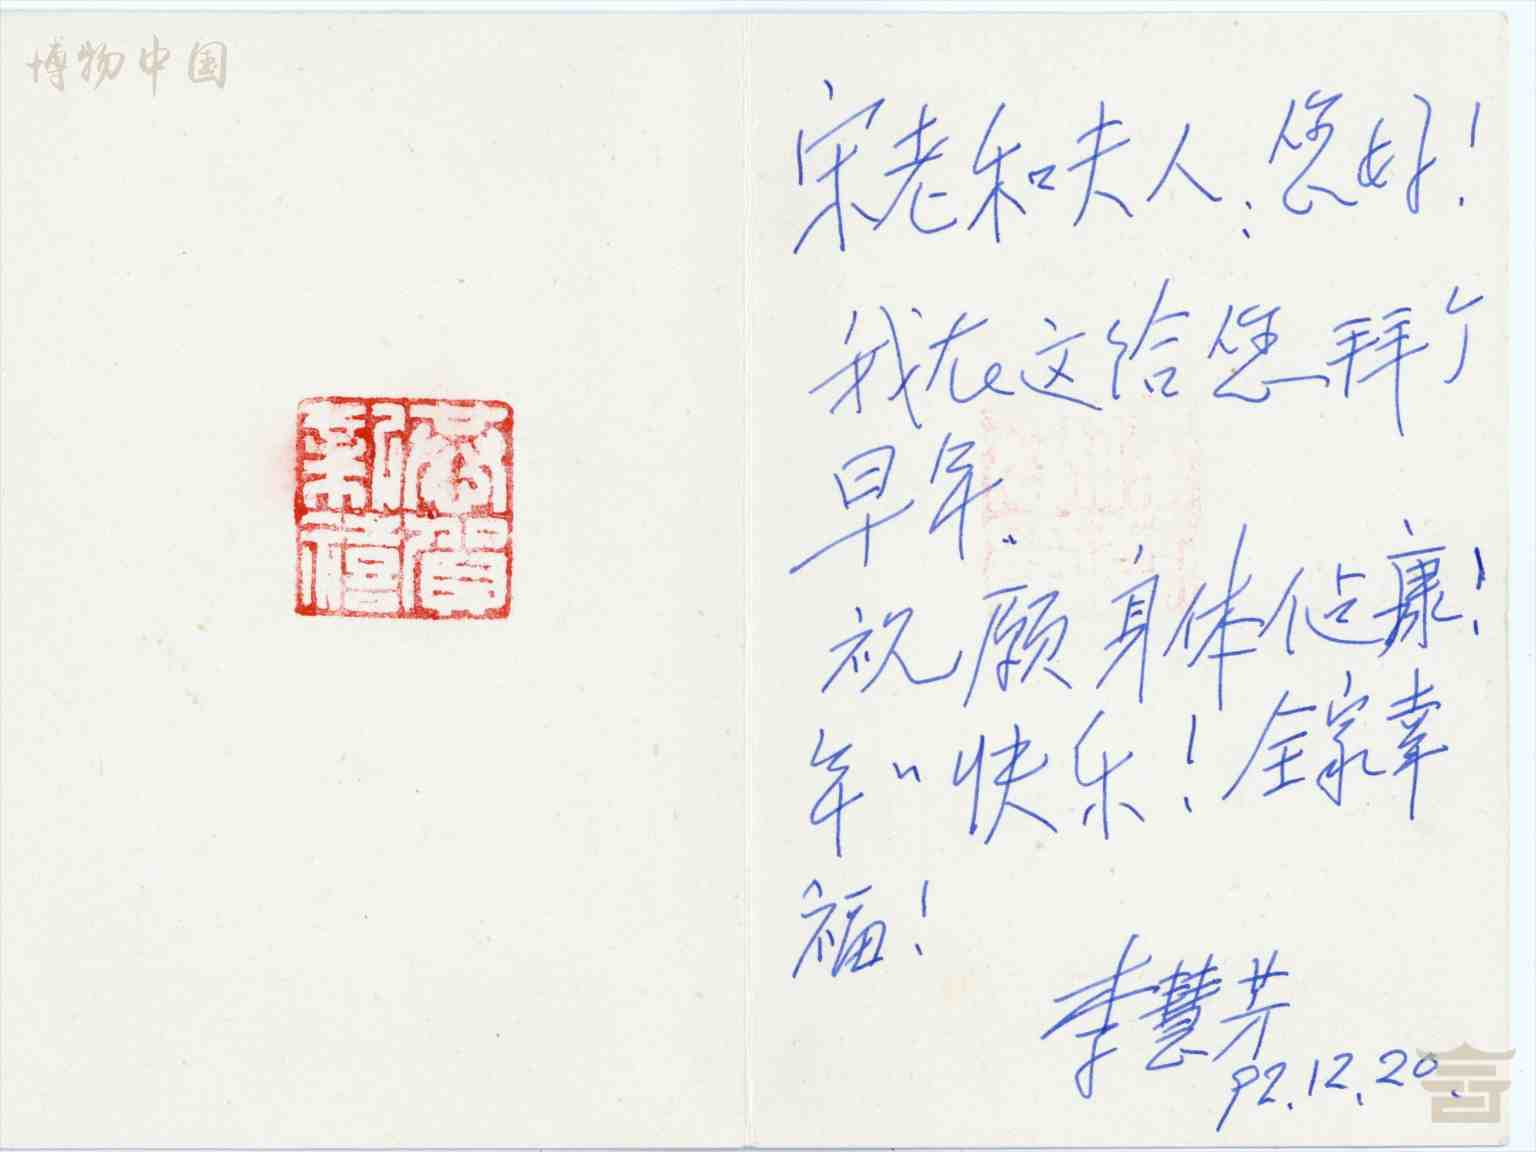 博物中国
恭贺
新禧
宋老和夫人:您好!
我在这给您拜个
早年.
祝愿身体佔康!
年〃快乐!全家幸
福!
李慧芳
92.12.20.